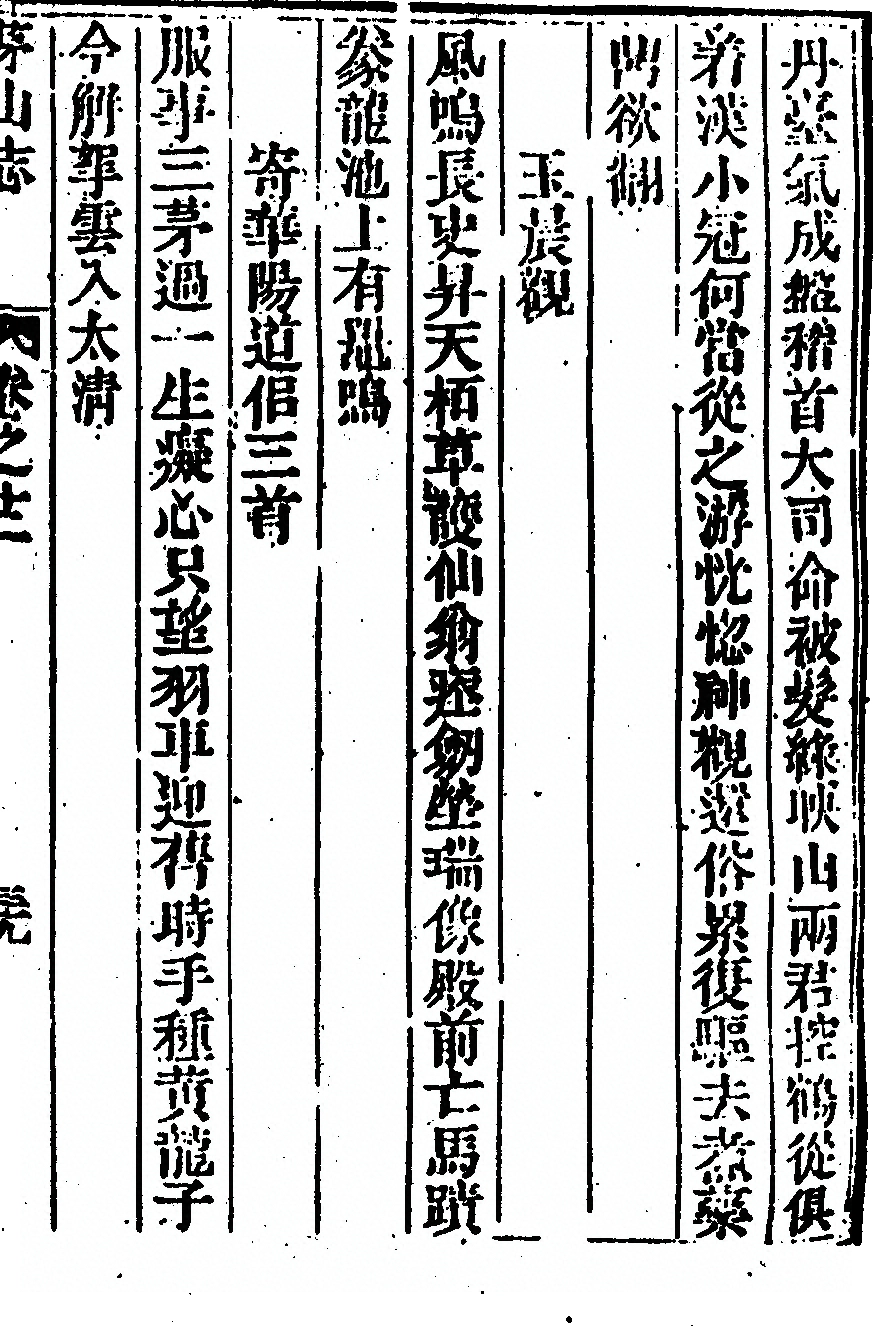 丹臺氣成盤稽首大司命被髮綠映山兩君控鶴從俱
着淡小冠何當從之游恍惚神觀還俗累復驅去煑藥
閒欲翻
玉晨觀
風鳴長史昇天栢草護仙翁瘞劒塋瑞像殿前亡馬蹟
豢龍池上有鼉鳴
寄華陽道侣三首
服事三茅過一生癡心只望羽車迎舊時手種黄龍子
今解籋雲入太清
茅山志 卷之十二